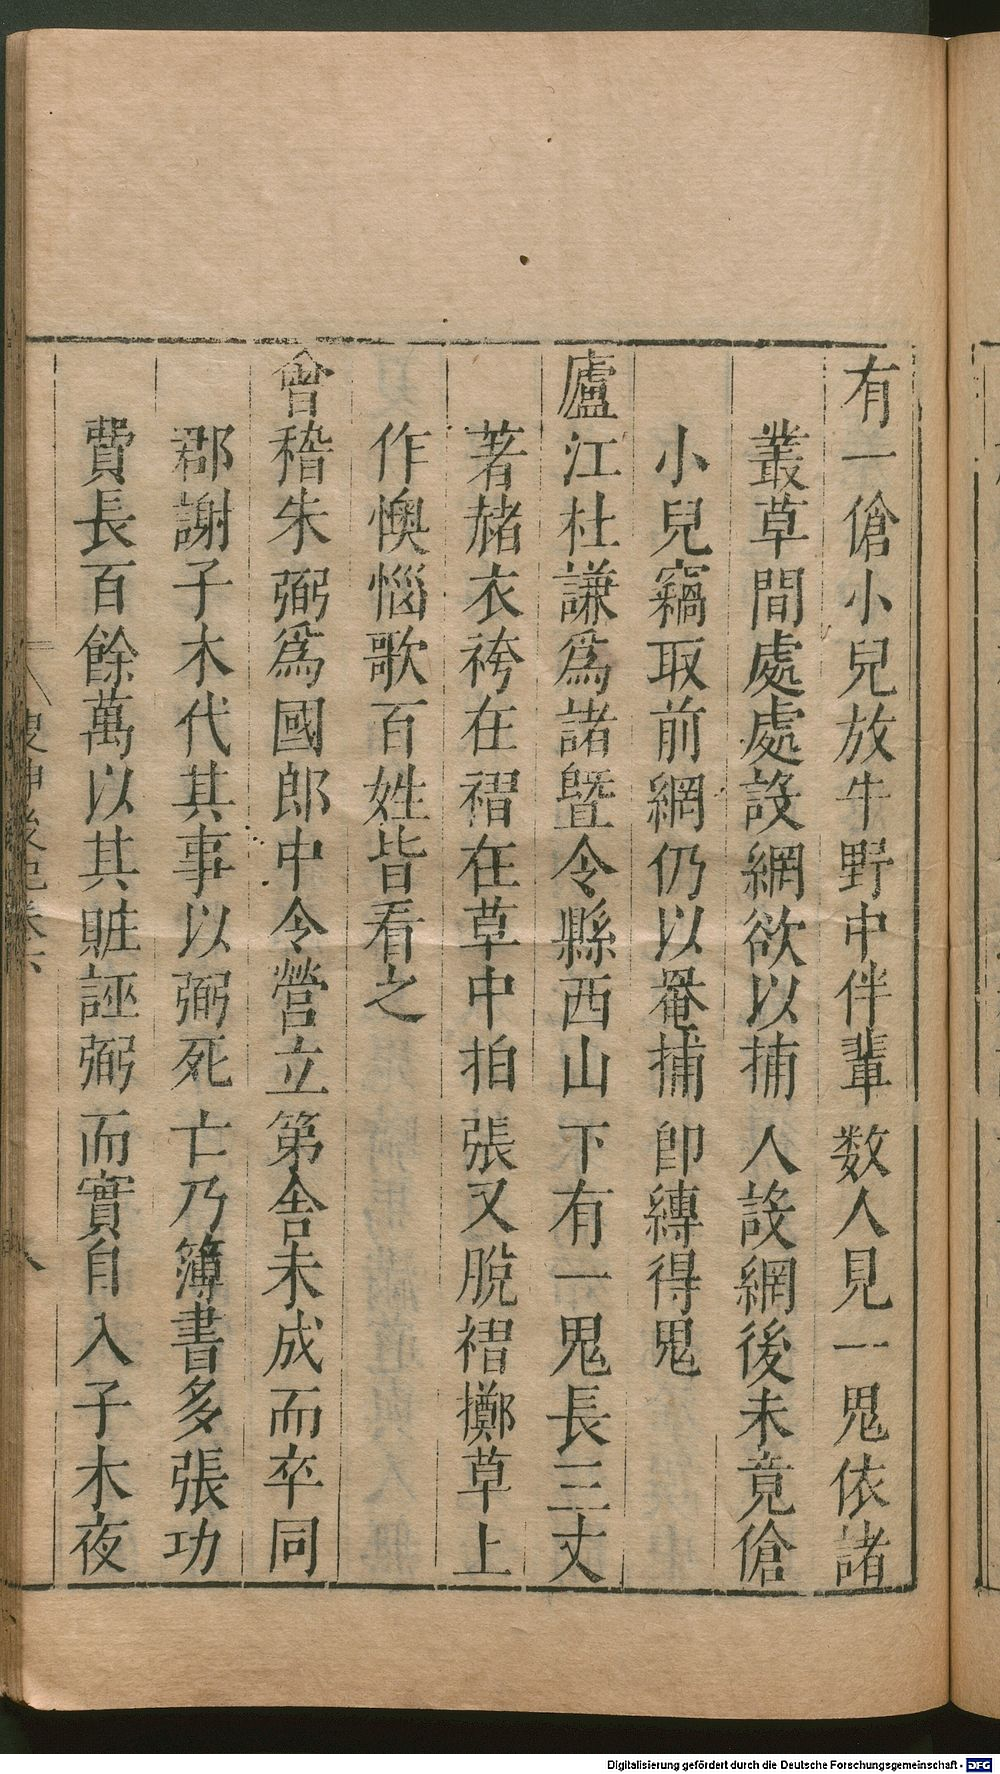 有一傖小兒放牛野中伴輩數人見一鬼依諸
叢草間處處設網欲以捕人設網後未竟傖
小兒竊取前網仍以罨捕卽縳得鬼
廬江杜謙爲諸曁令縣西山下有一鬼長三丈
著赭衣袴在褶在草中拍張又脫褶擲草上
作懊惱歌百姓皆看之
會稽朱弼爲國郎中令營立第舍未成而卒同
郡謝子木代其事以弼死亡乃簿書多張功
費長百餘萬以其賍誣弼而實自入子木夜
搜神後記卷六
八
Digitalisierung gefördert durch die Deutsche Forschungsgemeinschaft - DFG